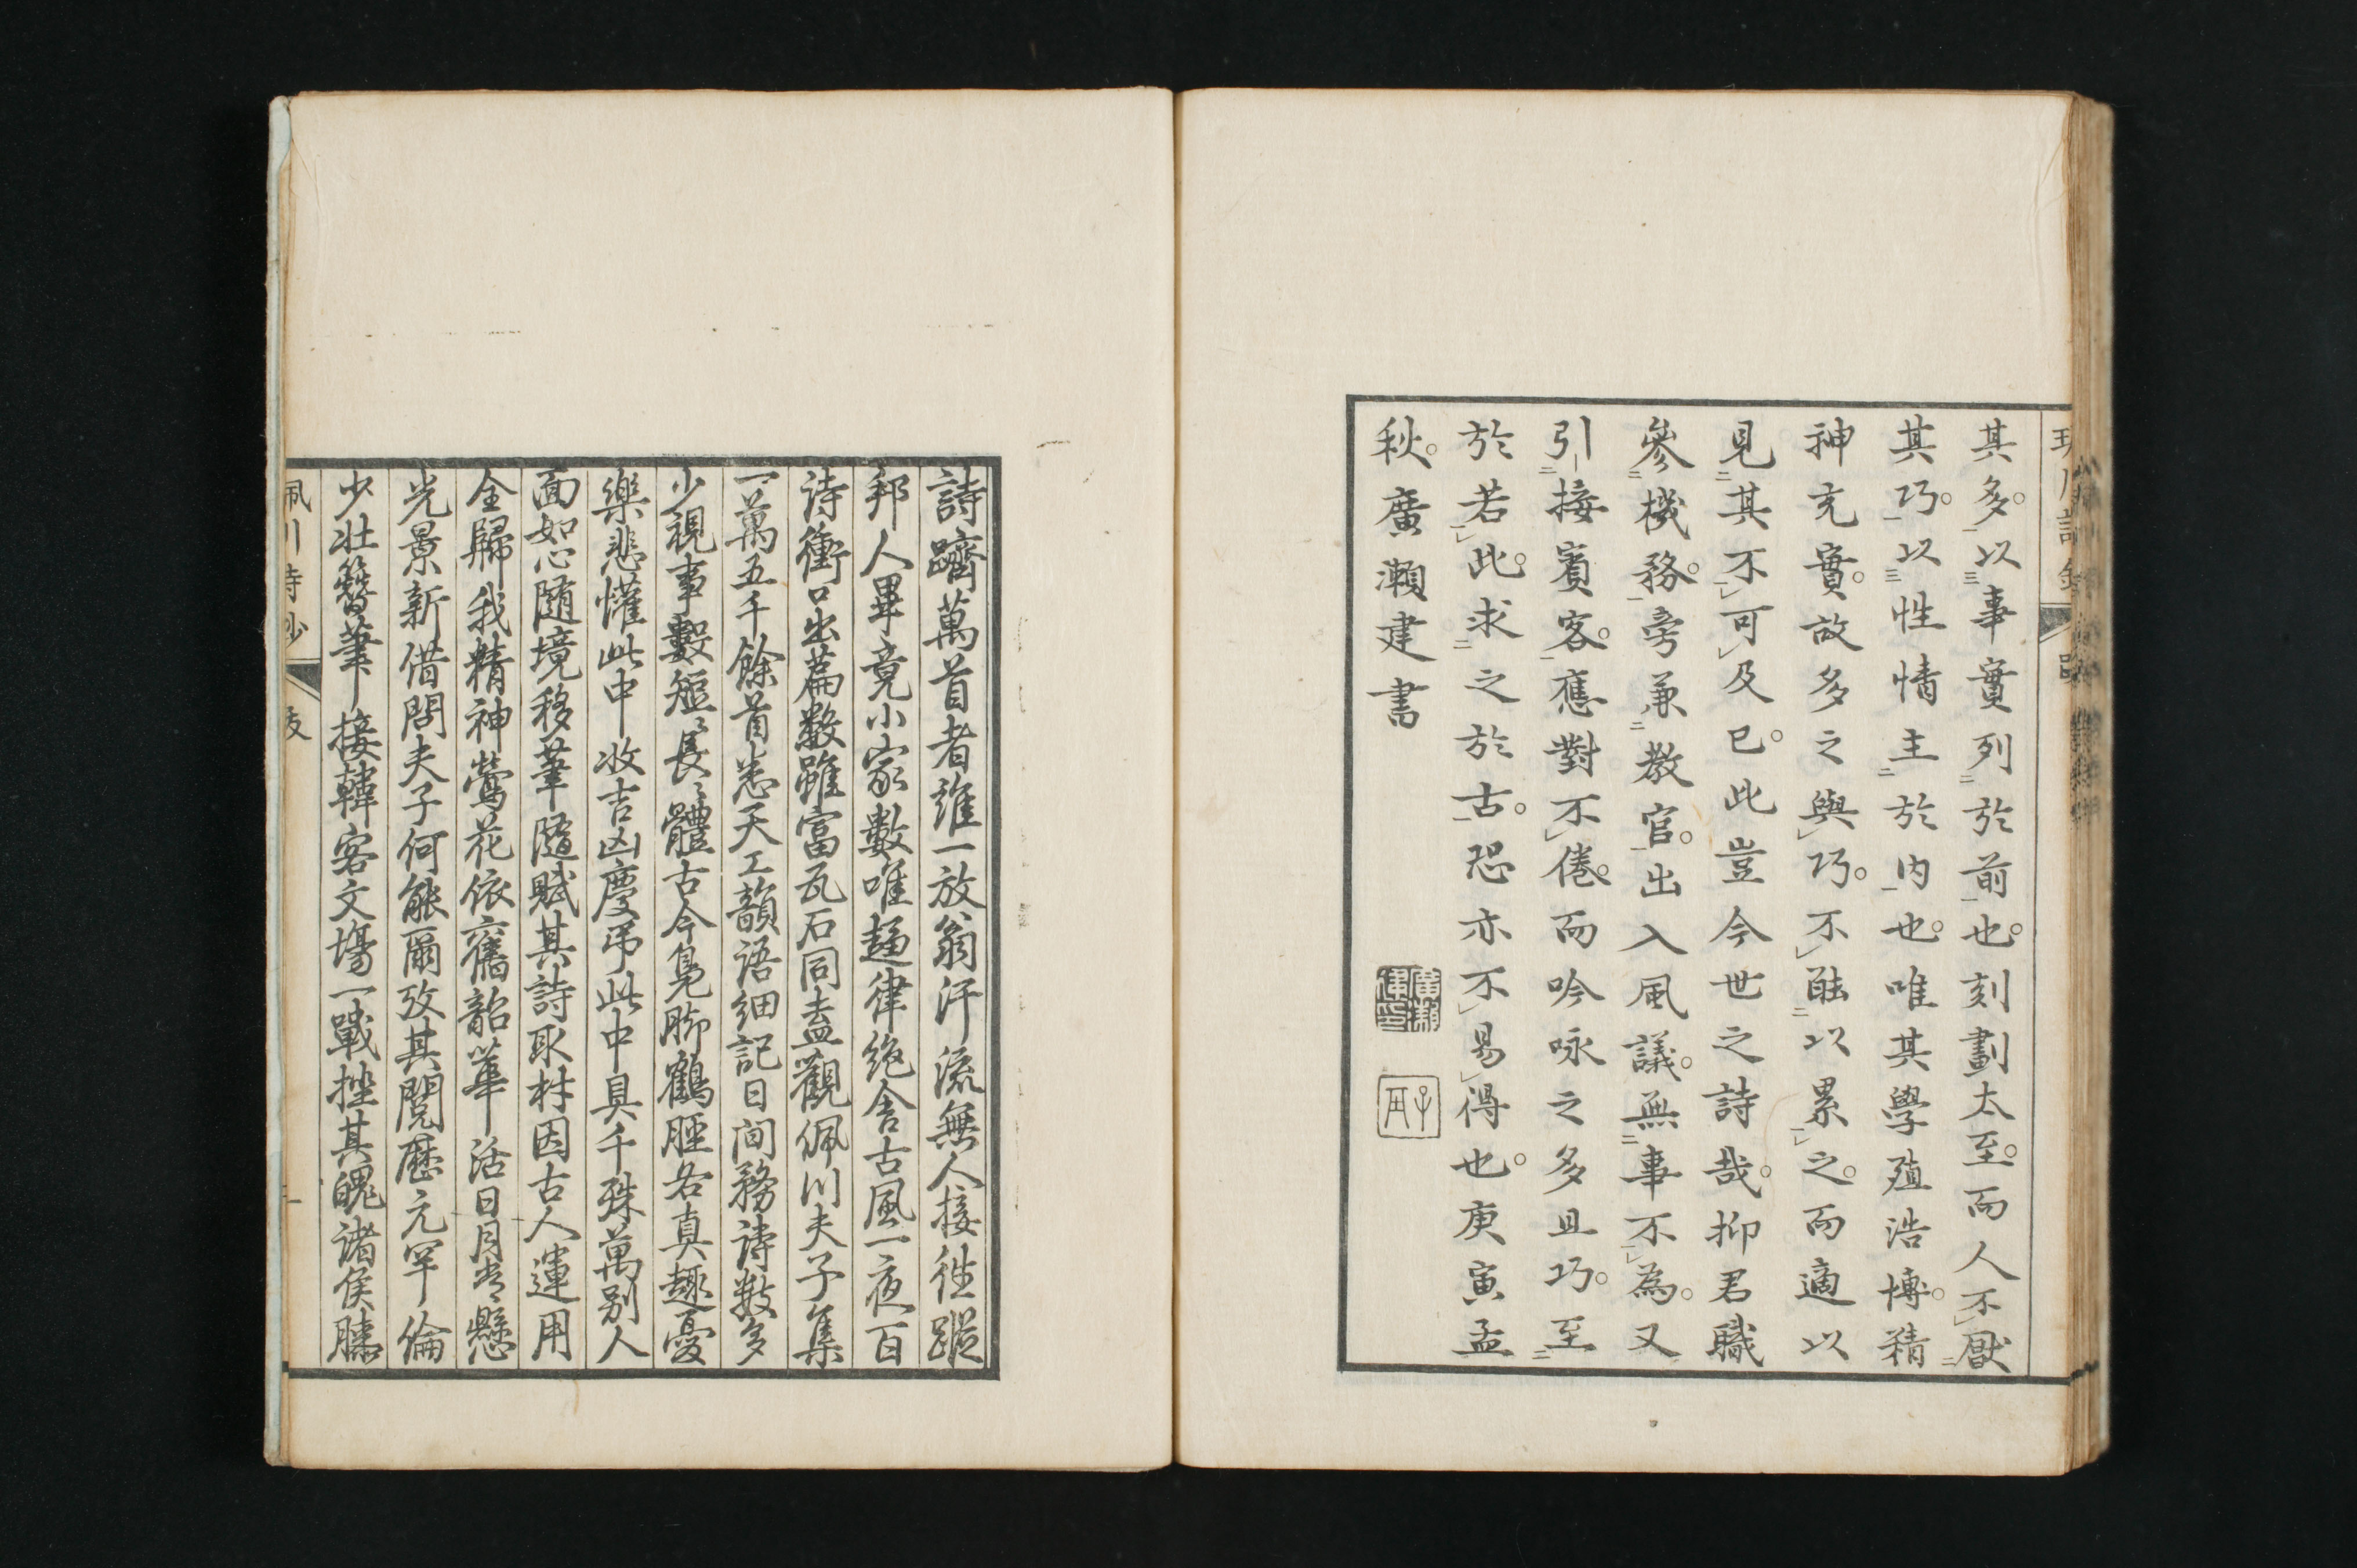 其多。以事實列於前也。刻劃太至。而人不厭
其巧。以性情主於内也。唯其學殖浩博。精
神充實。故多之與巧。不能以累之。而適以
見其不可及已。此豈今世之詩哉。抑君職
參機務。旁兼教官。出入風議。無事不為。又
引接賓客。應對不倦。而吟咏之多且巧。至
於若此。求之於古。恐亦不易得也。庚寅孟
秋。廣瀬建書
詩躋萬首者誰一放翁汗流無人接往蹤
邦人畢竟小家數唯趨律絶舎古風一夜百
詩衝口出篇數雖富瓦石同盍觀佩川夫子集
一萬五千餘首悉天工韻語細記日間務詩數多
少視事數短短長長體古今鳧脚鶴脛各真趣憂
樂悲懽此中收吉凶慶弔此中具千殊萬別人
面如心隨境移筆隨賦其詩取材因古人運用
全歸我精神鶯花依舊韶華活日月常懸
光景新借問夫子何能爾攷其閲歴元罕倫
少壯簪筆接韓客文場一戰挫其魄諸侯
佩川詩鈔 跋